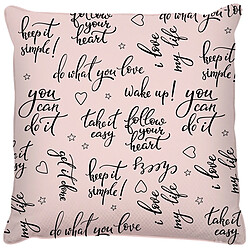 keep it
simple!
follow
your
heart
i love
my life
do what you love
wake up!
you
can
do it
take it
easy
follow
your
heart
i love
my life
get it done
keep it
simple!
success
i love
my life
you
can
do it
do what you love